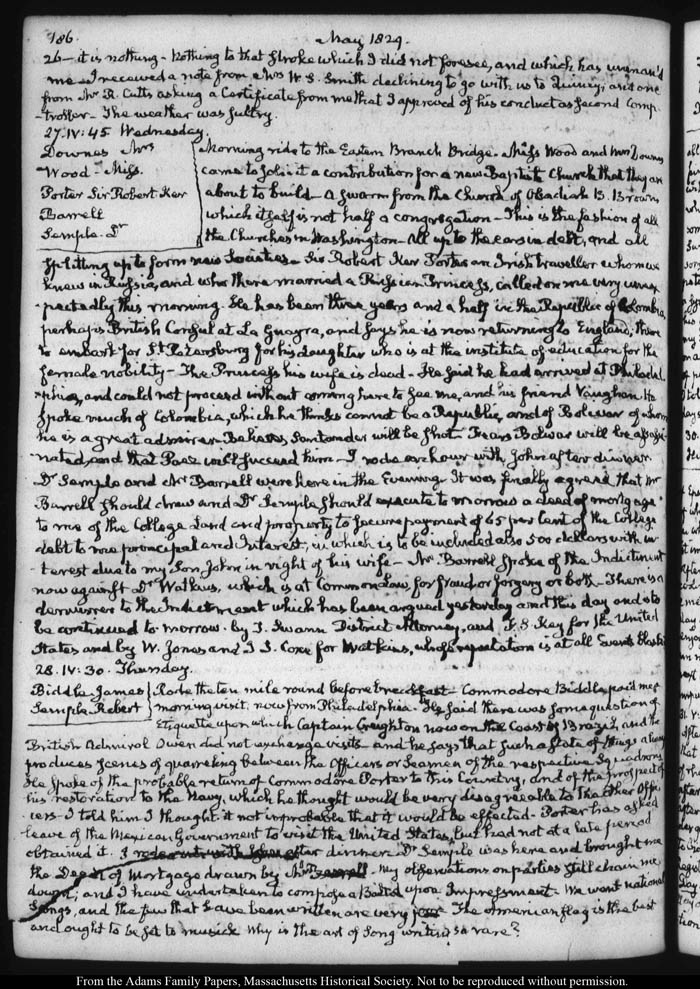 186. May 1829.
26— it is nothing - Nothing to that stroke which I did not foresee, and which has unman'd
me - I received a note from Mrs W. S. Smith declining to go with us to Quincy; and one
from Mr R. Cutts asking a Certificate from me that I approved of his conduct as second Comp-
-troller - The weather was sultry.
27. IV: 45 Wednesday.
Downes Mrs
Wood - Miss.
Porter Sir Robert Ker
Barrell
Semple. Dr
Morning ride to the Eastern Branch Bridge - Miss Wood and Mrs Downes
came to solicit a contribution for a new Baptist Church that they are
about to build - a swarm from the Church of Obadiah B. Brown
which itself is not half a congregation - This is the fashion of all
the Churches in Washington - All up to the ears in debt, and all
splitting up to form new Societies - Sir Robert Ker Porter an Irish traveller whom we
knew in Russia, and who there married a Russian Princess, called on me very unex-
-pectedly this morning. He has been three years and a half in the Republic of Colombia,
perhaps British Consul at La Guayra, and says he is now returning to England, there
to embark for St. Petersburg for his daughter who is at the institute of education for the
female nobility - The Princess his wife is dead - He said he had arrived at Philadel-
-phia, and could not proceed without coming here to see me, and his friend Vaughan. He
spoke much of Colombia, which he thinks cannot be a Republic, and of Bolivar of whom
he is a great admirer. Believes Santander will be shot. Fears Bolivar will be assassi-
-nated, and that Paez will succeed him - I rode an hour with John after dinner.
Dr Semple and Mr Barrell were here in the Evening. It was finally agreed that Mr
Barrell should draw and Dr Semple should execute to morrow a deed of mortgage
to me of the College Land and property to secure payment of 65 per Cent of the College
debt to me principal and Interest, in which is to be included also 500 dollars with in-
-terest due to my Son John in right of his wife - Mr Barrell spoke of the Indictment
now against Dr Watkins, which is at Common Law, for fraud or forgery or both - There is a
demurrer to the Indictment which has been argued yesterday and this day and is to
be continued to morrow. by T. Swann District Attorney, and F. S. Key for the United
States and by W. Jones and R. S. Coxe for Watkins, whose reputation is at all Events blasted
28. IV: 30. Thursday.
Biddle James
Semple Robert
Rode the ten mile round before breakfast - Commodore Biddle paid me a
morning visit. now from Philadelphia - He said there was some question of
Etiquette upon which Captain Creighton now on the Coast of Brazil, and the
British Admiral Owen did not exchange visits - and he says that such a state of things always
produces scenes of quarreling between the Officers or Seamen of the respective Squadrons
He spoke of the probable return of Commodore Porter to this Country, and of the prospect of
his restoration to the Navy, which he thought would be very disagreeable to the other Offi-
cers - I told him I thought it not improbable that it would be effected - Porter has asked
leave of the Mexican Government to visit the United States, but had not at a late period
obtained it. I rode out with John after dinner. Dr Semple was here and brought me
the Deed of Mortgage drawn by Mr Barrell - My observations on parties still chain me
down; and I have undertaken to compose a Ballad upon Impressment. We want national
Songs, and the few that have been written are very poor. The American flag is the best
and ought to be set to musick Why is the art of Song writing so rare?
From the Adams Family Papers, Massachusetts Historical Society. Not to be reproduced without permission.